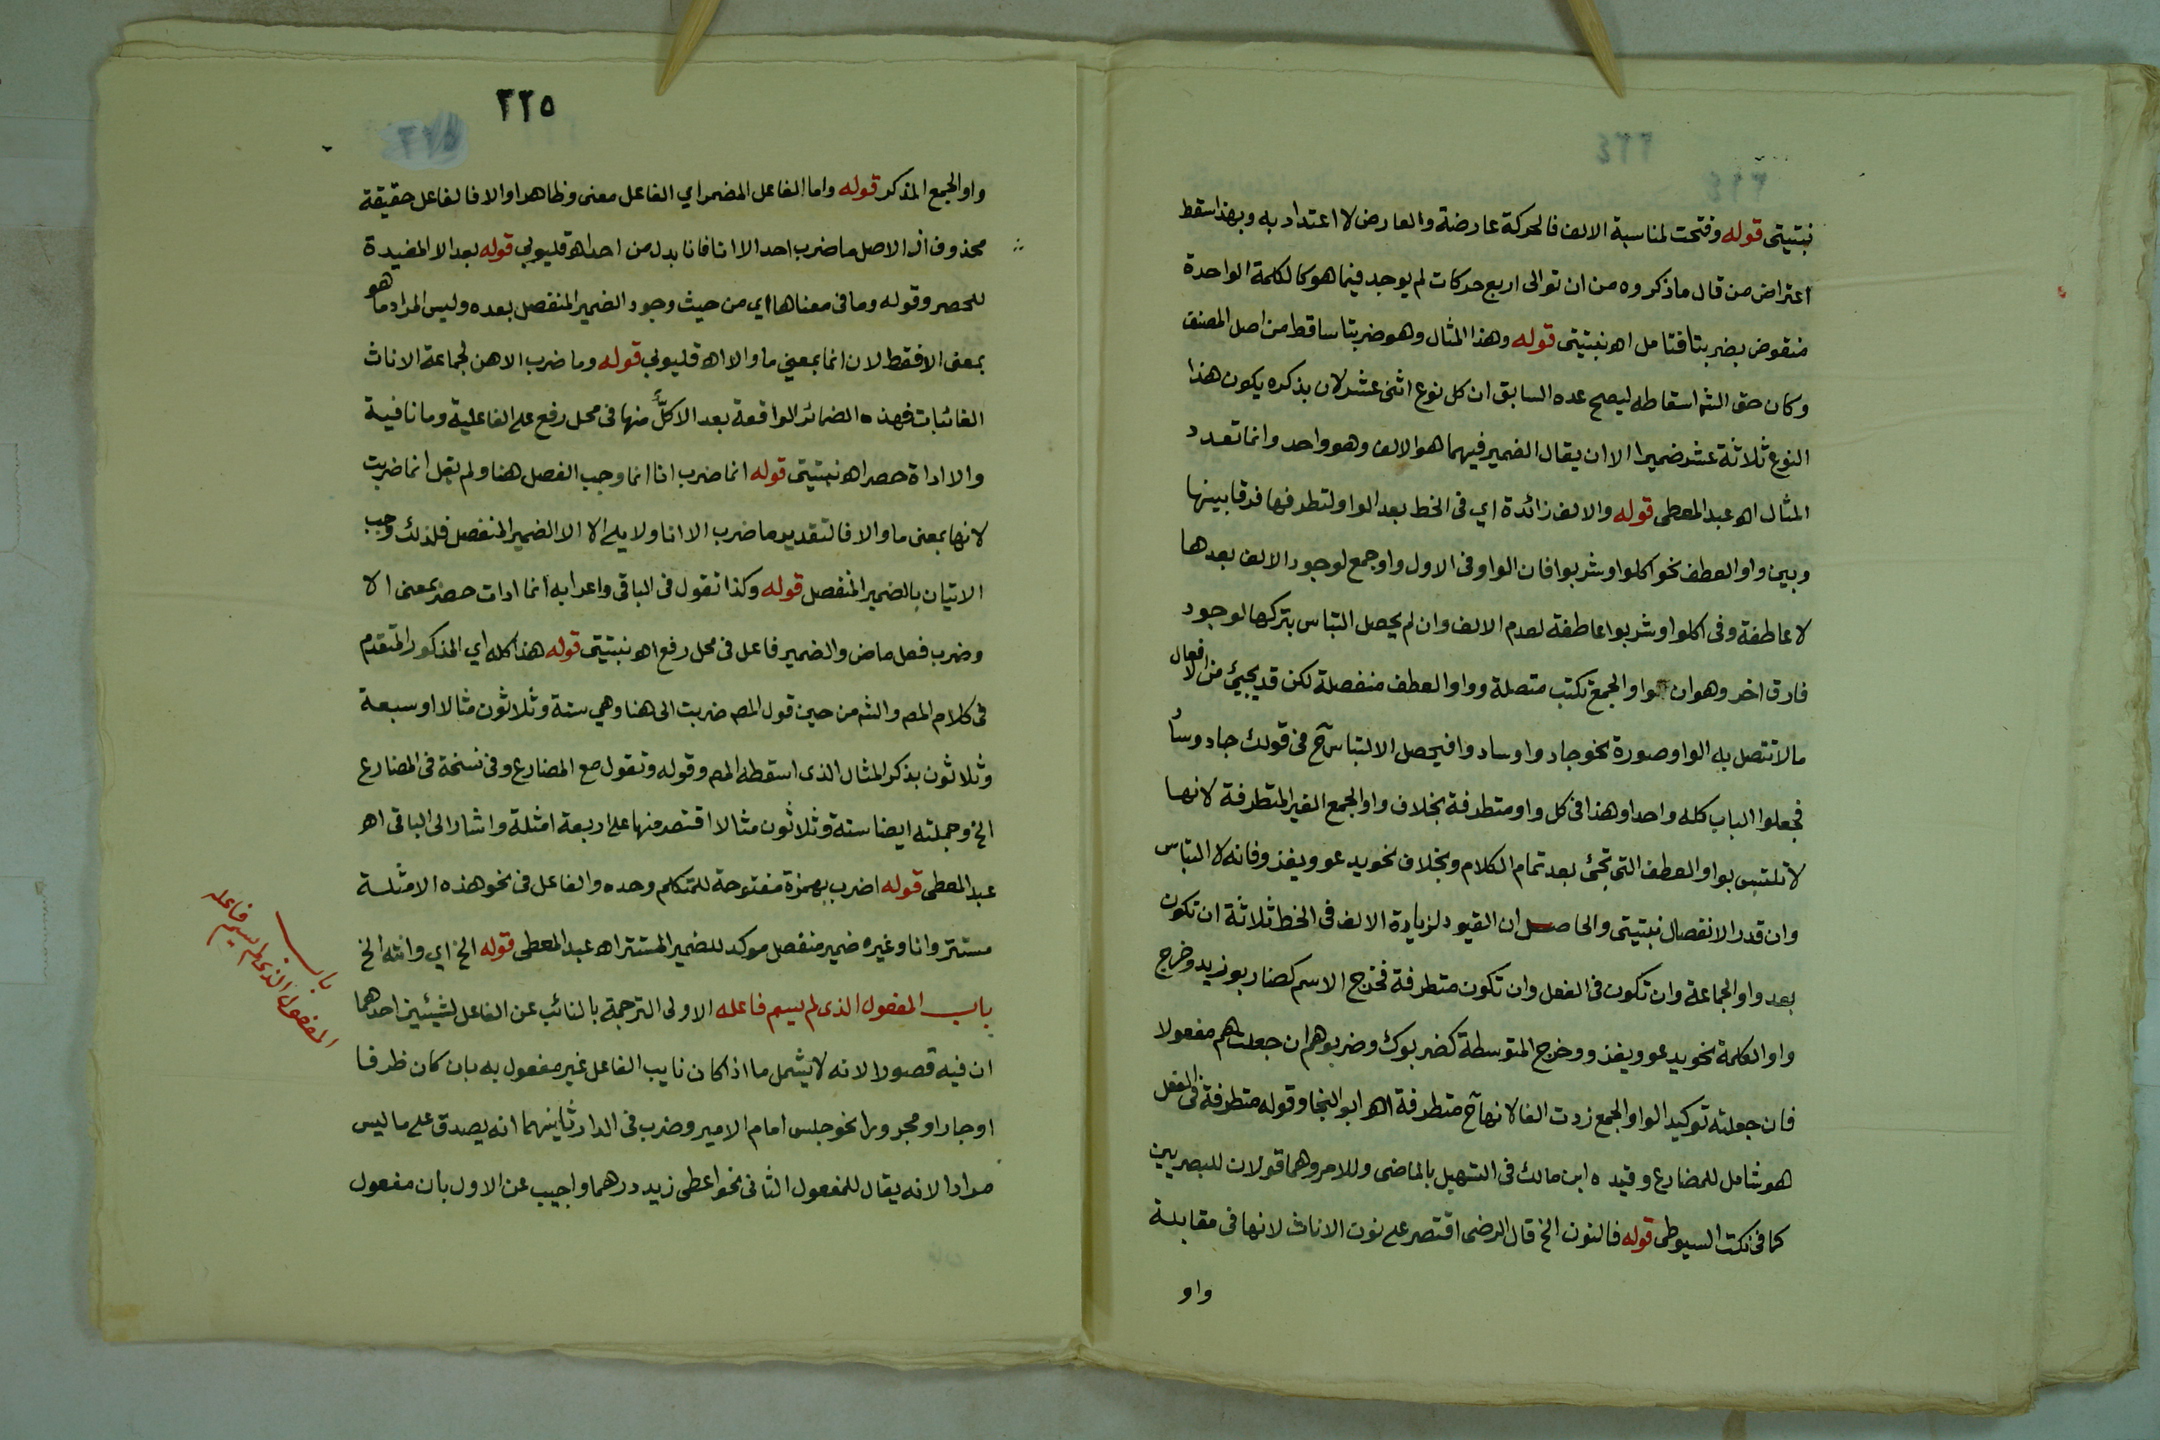 نبتيتى قوله وفتحت لمناسبة الالف فالحركة عارضة والعارض لا اعتداد به وبهذا سقط
اعتراض من قال ما ذكروه من ان توالى اربع حركات لم يوجد فيما هو كالكلمة الواحدة
منقوض بضربتا فتامل اهـ نبتيتى قوله وهذا المثال وهو ضربتا ساقط من اصل المصنف
وكان حق الشم اسقاطه ليصح عده السابق ان كل نوع اثنى عشر لان بذكره يكون هذا
النوع ثلاثة عشر ضميرا الا ان يقال الضمير فيهما هو الالف وهو واحد وانما تعدد
المثال اهـ عبد المعطى قوله والالف زائدة اي فى الخط بعد الواو لتطرفها فرقا بينها
وبين واو العطف نحو اكلوا وشربوا فان الواو فى الاول واو جمع لوجود الالف بعدها
لا عاطفة وفى اكلوا وشربوا عاطفة لعدم الالف وان لم يحصل التباس بتركها لوجود
فارق اخر وهو ان واو الجمع تكتب متصلة وواو العطف منفصلة لكن قد يجيئ من الافعال
مالا تتصل به الواو صورة نحو جادوا وسادوا فيحصل الالتباس ح فى قولك جاد وسأ
فجعلوا الباب كله واحدا وهذا فى كل واو متطرفة بخلاف واو الجمع الغير المتطرفة لانها
لا تلتبس بواو العطف التى تجئ بعد تمام الكلام وبخلاف نحو يدعو ويغزو فانه لا التباس
وان قدر الانفصال نبتيتى والحاصل ان القيود لزيادة الالف فى الخط ثلاثة ان تكون
بعد واو الجماعة وان تكون فى الفعل وان تكون متطرفة فخرج الاسم كضاربو زيد وخرج
واو الكلمة نحو يدعو ويغزو وخرج المتوسطة كضربوك وضربوهم ان جعلت هم مفعولا
فان جعلته توكيد الواو الجمع زدت الفا لانها ح متطرفة اهـ ابو النجا وقوله متطرفة فى الفعل
هو شامل للمضارع وقيده ابن مالك فى التسهيل بالماضى وللامر وهما قولان للبصريين
كما فى نكت السيوطى قوله فالنون الخ قال الرضى اقتصر على نون الاناث لانها فى مقابلة
واو
٢٢٥
واو الجمع المذكر قوله واما الفاعل المضمر اي الفاعل معنى وظاهرا والا فالفاعل حقيقة
محذوف اذ الاصل ما ضرب احد الا انا فانا بدل من احد اهـ قليوبي قوله بعد الا المفيدة
للحصر وقوله وما فى معناها اي من حيث وجود الضمير المنفصل بعده وليس المراد ما هو
بمعنى الا فقط لان انما بمعنى ما والا اهـ قليوبي قوله وما ضرب الا هن لجماعة الاناث
الغائبات فهذه الضمائر الواقعة بعد الا كلٌّ منها فى محل رفع على الفاعلية وما نافية
والا اداة حصر اهـ نبتيتى قوله انما ضرب انا انما وجب الفصل هنا ولم يقل انما ضربت
لانها بمعنى ما والا فالتقدير ما ضرب الا انا ولا يلى الا الا الضمير المنفصل فلذلك وجب
الاتيان بالضمير المنفصل قوله وكذا تقول فى الباقى واعرابه انما ادات حصر بمعنى الا
وضرب فعل ماض والضمير فاعل فى محل رفع اهـ نبتيتى قوله هذا كله اي المذكور المتقدم
فى كلام المص والشم من حين قول المص ضربت الى هنا وهي ستة وثلاثون مثالا او سبعة
وثلاثون بذكر المثال الذى اسقطه المص وقوله وتقول مع المضارع وفى نسخة فى المضارع
الخ وجملته ايضا ستة وثلاثون مثالا اقتصر منها على اربعة امثلة واشار الى الباقى اهـ
عبد المعطى قوله اضرب بهمزة مفتوحة للمتكلم وحده والفاعل فى نحو هذه الامثلة
مستتر وانا وغيره ضمير منفصل موكد للضمير المستتر اهـ عبد المعطى قوله الخ اي وانته الخ
باب المفعول الذى لم يسم فاعله الاولى الترجمة بالنائب عن الفاعل لشيئين احدهما
ان فيه قصورا لانه لا يشمل ما اذا كان نايب الفاعل غير مفعول به بان كان ظرفا
او جارا ومجرورا نحو جلس امام الامير وضرب فى الدار ثانيهما انه يصدق على ما ليس
مرادا لانه يقال للمفعول الثانى نحو اعطى زيد درهما واجيب عن الاول بان مفعول
باب
المفعول الذى لم يسم فاعله